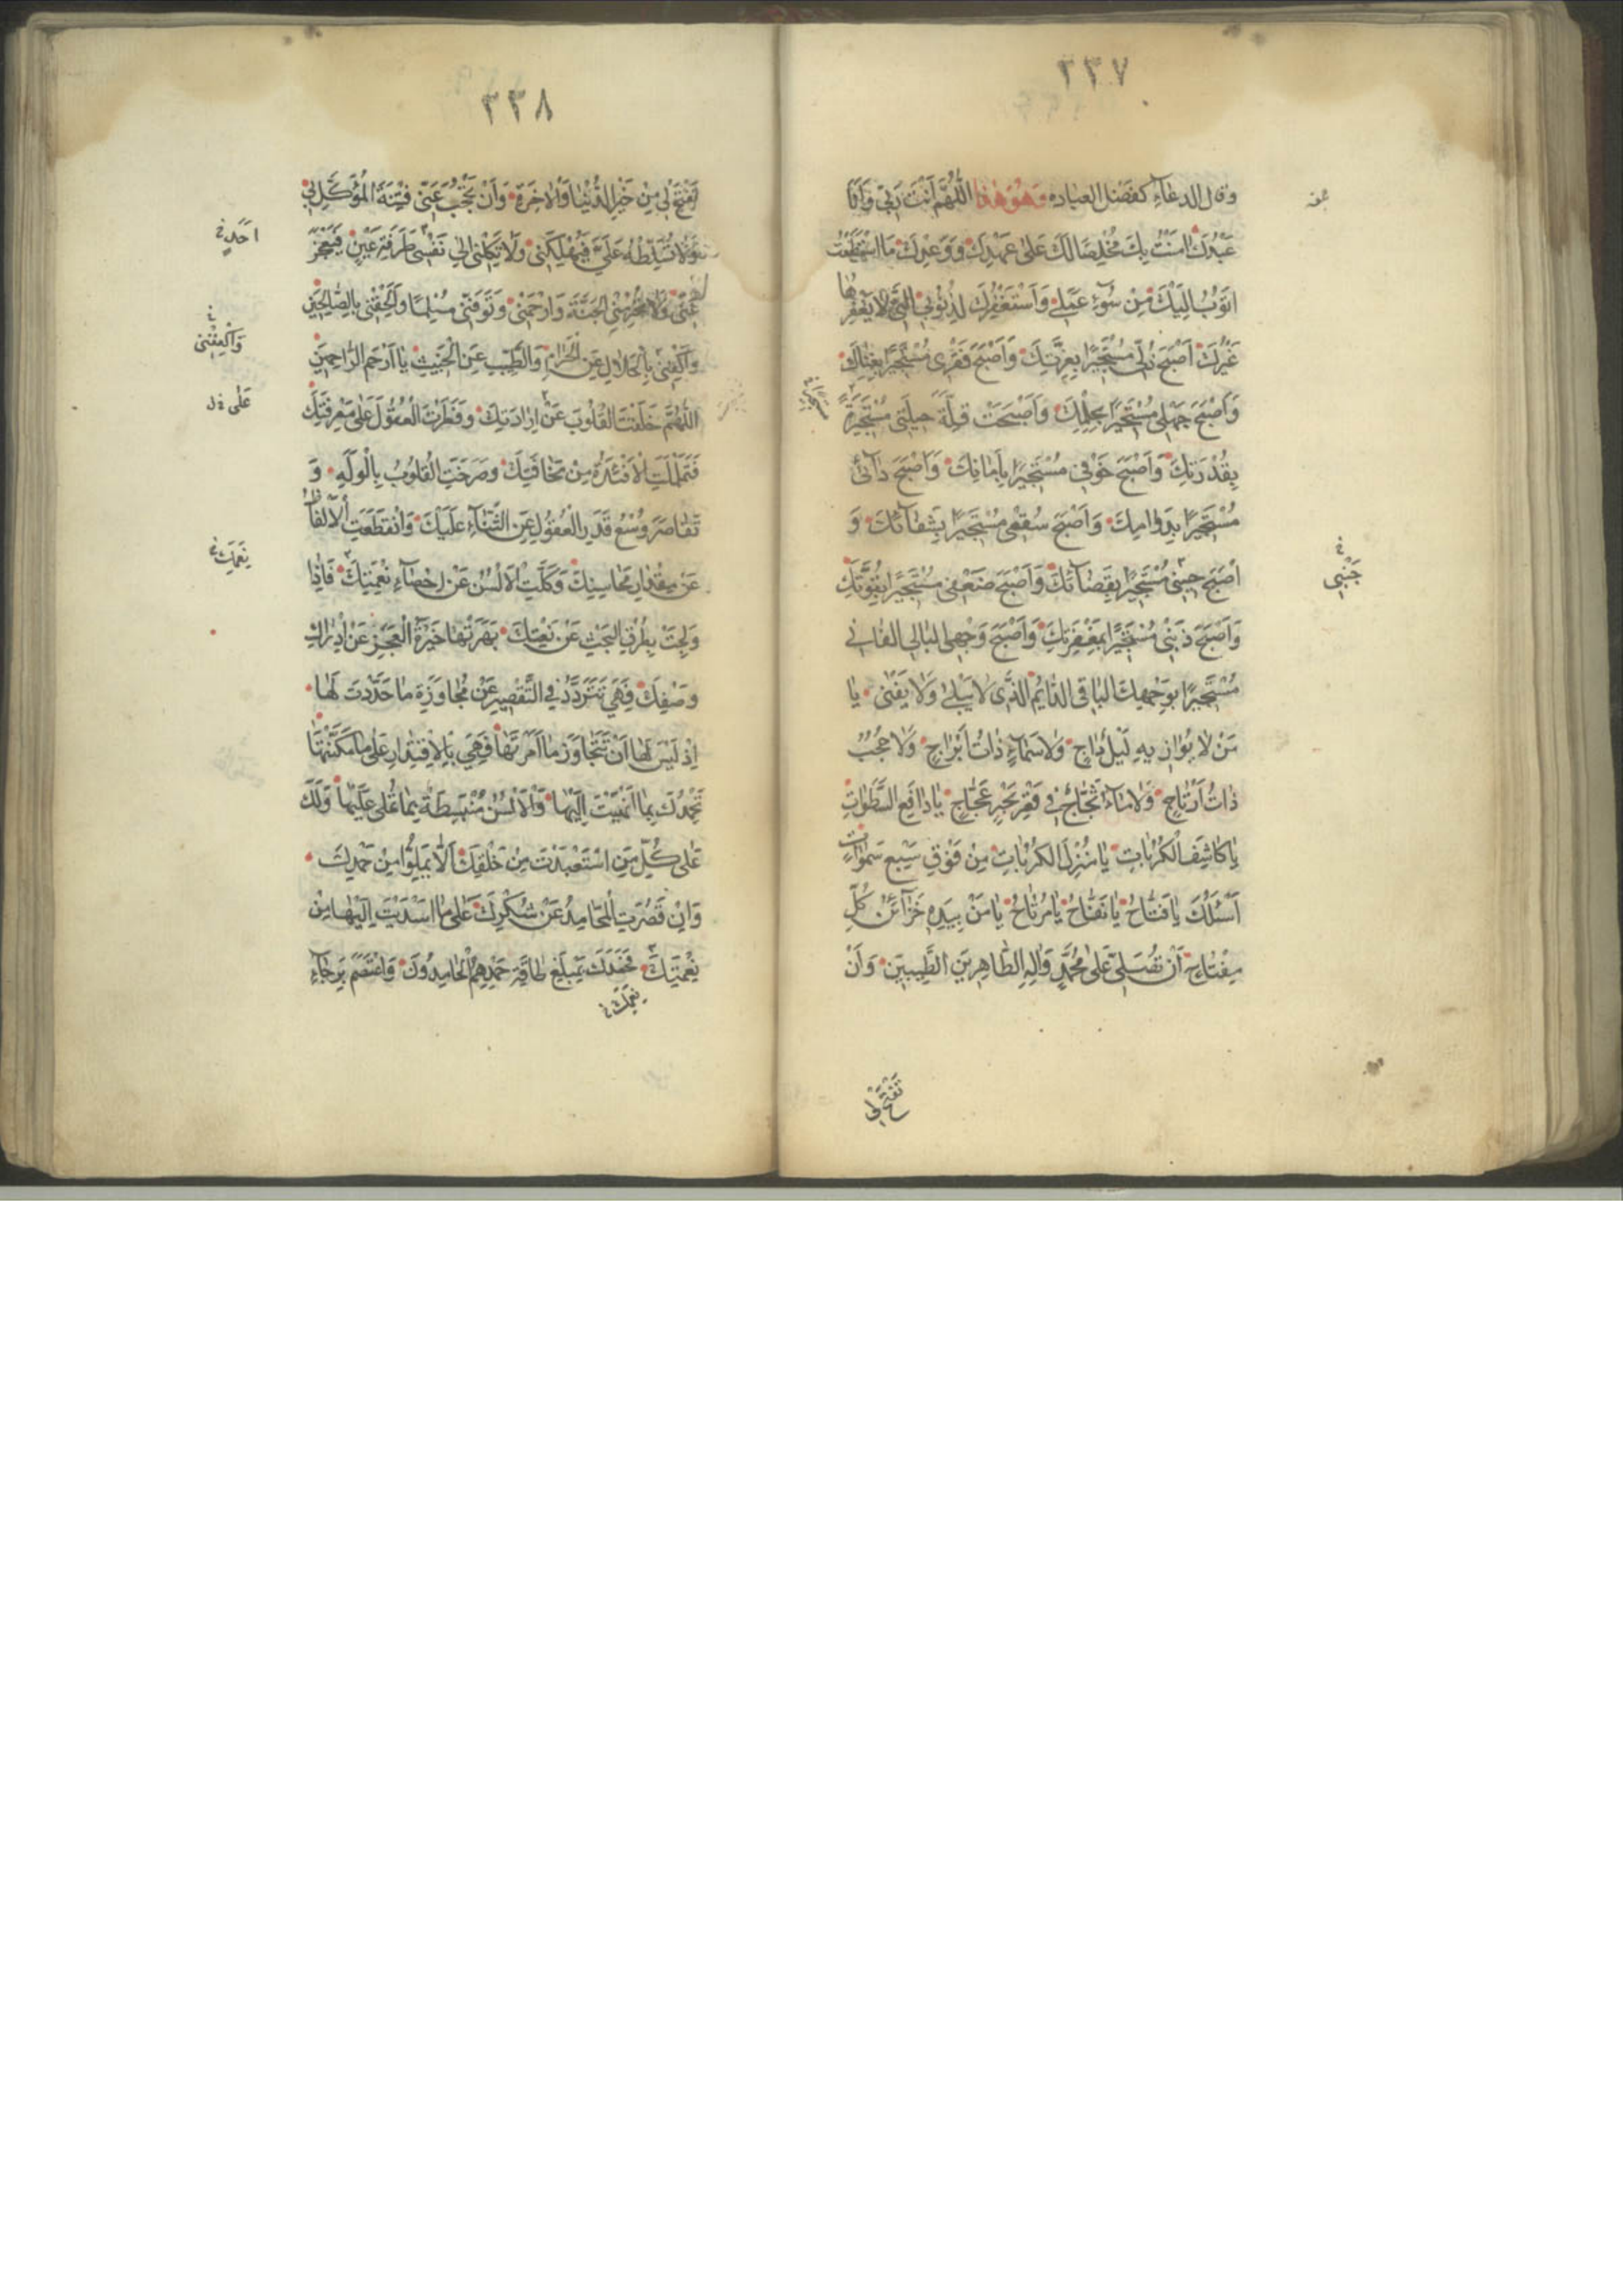 ٣٣٧
وقال الدعاء كفضل العباده وَهُوَ هٰذا اَللّٰهُمَّ اَنْتَ رَبّي وَاَنَا
عَبْدُكَ امَنْتُ بِكَ مُخْلِصًا لَكَ عَلىٰ عَهْدِكَ وَوَعْدِكَ مَا اسْتَطَعْتُ
اَتُوبُ اِلَيْكَ مِنْ سُوۤءِ عَمَلي وَاَسْتَغْفِرُكَ لِذُنُوبِي الَّتي لا يَغْفِرُها
غَيْرُكَ اَصْبَحَ ذُلّي مُسْتَجيرًا بِعِزَّتِكَ وَاَصْبَحَ فَقْري مُسْتَجيرًا بِغِناكَ
وَاَصْبَحَ جَهْلي مُسْتَجيرًا بِحِلْمِكَ وَاَصْبَحَتْ قِلَّةُ حيلَتي مُسْتَجيرَةً
بِقُدْرَتِكَ وَاَصْبَحَ خَوْفي مُسْتَجيرًا بِاَمانِكَ وَاَصْبَحَ دۤائي
مُسْتَجيرًا بِدَوامِكَ وَاَصْبَحَ سُقْمي مُسْتَجيرًا بِشِفاۤئِكَ وَ
اَصْبَحَ حيني مُسْتَجيرًا بِقَضاۤئِكَ وَاَصْبَحَ ضَعْفي مُسْتَجيرًا بِقُوَّتِكَ
وَاَصْبَحَ ذَنْبي مُسْتَجيرًا بِمَغْفِرَتِكَ وَاَصْبَحَ وَجْهِي البالِي الفاني
مُسْتَجيرًا بِوَجْهِكَ الباقِي الدّائِمِ الَّذي لا يَبْلىٰ وَلا يَفْنىٰ يا
مَنْ لا يُواريهِ لَيْلٌ داجٍ وَلا سَماۤءٌ ذاتُ اَبْراجٍ وَلا حُجُبٌ
ذاتُ اَرْتاجٍ وَلا ماۤءٌ ثَجّاجٌ في قَعْرِ بَحْرٍ عَجّاجٍ يا دافِعَ السَّطَواتِ
يا كاشِفَ الْكُرُباتِ يا مُنْزِلَ البَرَكاتِ مِنْ فَوْقِ سَبْعِ سَمٰواتٍ
اَسْئَلُكَ يا فَتّاحُ يا نَفّاحُ يا مُرْتاحُ يا مَنْ بِيَدِهِ خَزاۤئِنُ كُلِّ
مِفْتاحٍ اَنْ تُصَلِّيَ عَلىٰ مُحَمَّدٍ وَالِهِ الطّاهِرينَ الطَّيِّبينَ وَاَنْ
جَنْبي
تَفْتَحَ لي
٣٣٨
تَفْتَحَ لي مِنْ خَيْرِ الدُّنْيا وَالْاٰخِرَةِ وَاَنْ تَحْجُبَ عَنّي فِتْنَةَ المُوَكَّلِ بي
وَلا تُسَلِّطْهُ عَلَيَّ فَيُهْلِكَني وَلا تَكِلْني اِلىٰ نَفْسي طَرْفَةَ عَيْنٍ فَيَعْجِزَ
عَنّي وَلا تَحْرِمْنِي الجَنَّةَ وَارْحَمْني وَتَوَفَّني مُسْلِمًا وَاَلْحِقْني بِالصّالِحينَ
وَاكْفِني بِالْحَلالِ عَنِ الْحَرامِ وَالطَّيِّبِ عَنِ الْخَبيثِ يا اَرْحَمَ الرّاحِمينَ
اَللّٰهُمَّ خَلَقْتَ القُلُوبَ عَلىٰ اِرادَتِكَ وَفَطَرْتَ الْعُقُولَ عَلىٰ مَعْرِفَتِكَ
فَتَمَلْمَلَتِ الْاَفْئِدَةُ مِنْ مَخافَتِكَ وَصَرَخَتِ القُلُوبُ بِالْوَلَهِ وَ
تَقاصَرَ وُسْعُ قَدْرِ الْعُقُولِ عَنِ الثَّناۤءِ عَلَيْكَ وَانْقَطَعَتِ الْاَلْفاظُ
عَنْ مِقْدارِ مَحاسِنِكَ وَكَلَّتِ الْاَلْسُنُ عَنْ اِحْصاۤءِ نِعْمَتِكَ فَاِذا
وَلَجَتْ بِطُرُقِ البَحْثِ عَنْ نَعْتِكَ بَهَرَتْها حَيْرَةُ الْعَجْزِ عَنْ اِدْراكِ
وَصْفِكَ فَهِيَ تَتَرَدَّدُ فِي التَّقْصيرِ عَنْ مُجاوَزَةِ ما حَدَّدْتَ لَها
اِذْ لَيْسَ لَها اَنْ تَتَجاوَزَ ما اَمَرْتَها فَهِيَ بِالْاِقْتِدارِ عَلىٰ ما مَكَّنْتَها
تَحْمَدُكَ بِما اَنْهَيْتَ اِلَيْها وَالْاَلْسُنُ مُنْبَسِطَةٌ بِما تُمْلي عَلَيْها وَلَكَ
عَلىٰ كُلِّ مَنِ اسْتَعْبَدْتَ مِنْ خَلْقِكَ اَلّا يَمَلُّوا مِنْ حَمْدِكَ
وَاِنْ قَصُرَتِ المَحامِدُ عَنْ شُكْرِكَ عَلىٰ ما اَسْدَيْتَ اِلَيْها مِنْ
نِعْمَتِكَ فَحَمِدَكَ بِمَبْلَغِ طاقَةِ حَمْدِهِمُ الْحامِدُونَ وَاعْتَصَمَ بِرَجاۤءِ
وَاكْفِني
عَلىٰ
نِعَمِكَ
نِعَمِكَ